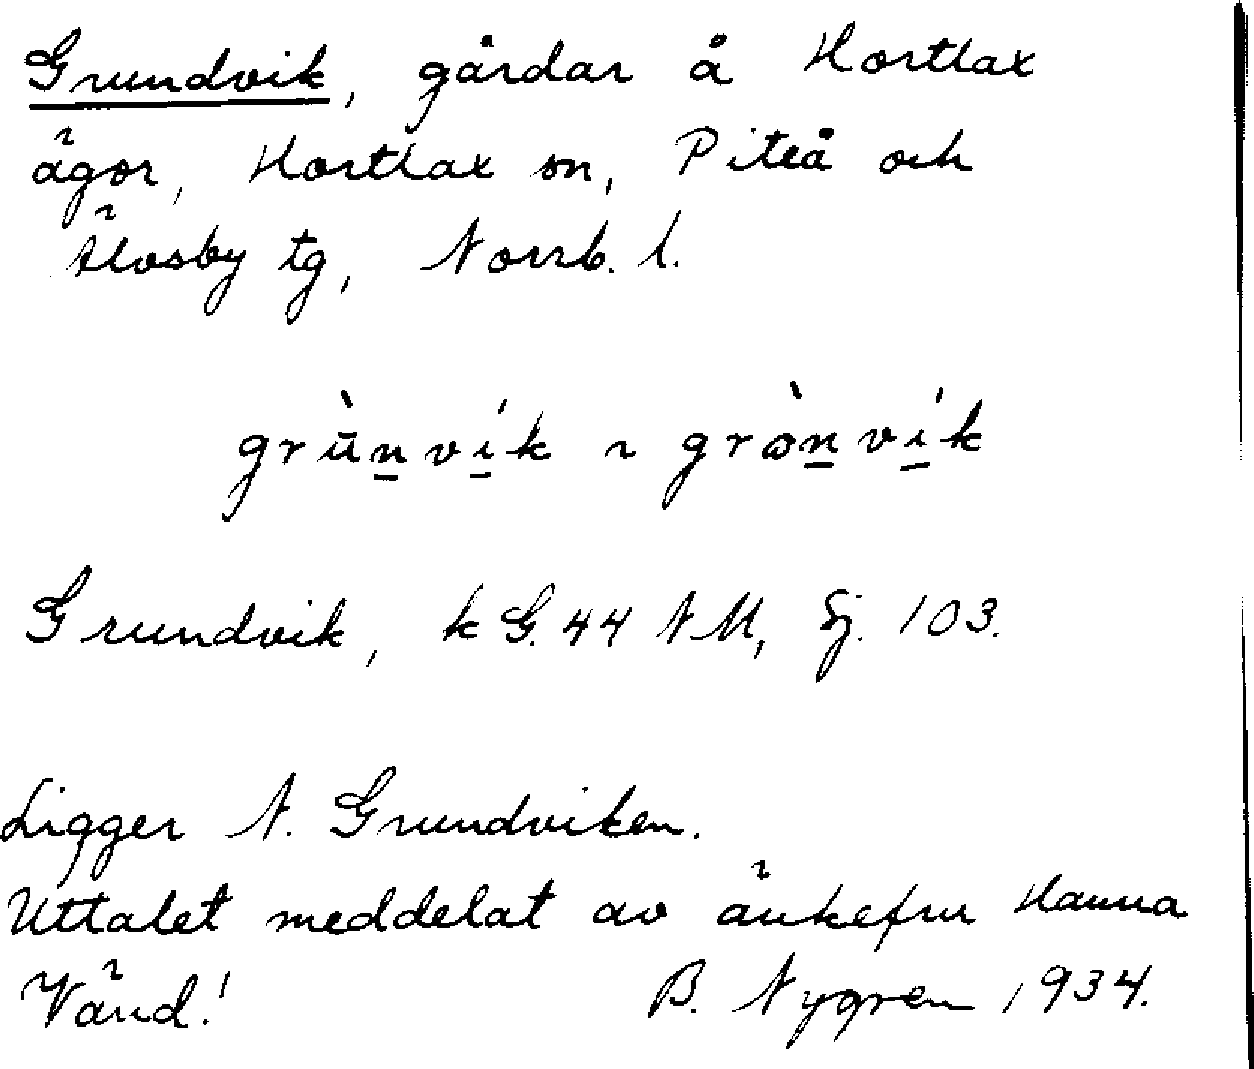 Grundvik, gårdar å Hortlax
ägor, Hortlax sn, Piteå och
Älvsby tg, Norrb. l.
grùn̲ví̲k ~ gròn̲ví̲k
Grundvik, k G. 44 NM, Fj. 103.
Ligger N. Grundviken.
Uttalet meddelat av änkefru Hanna
Vänd! B. Nygren 1934.